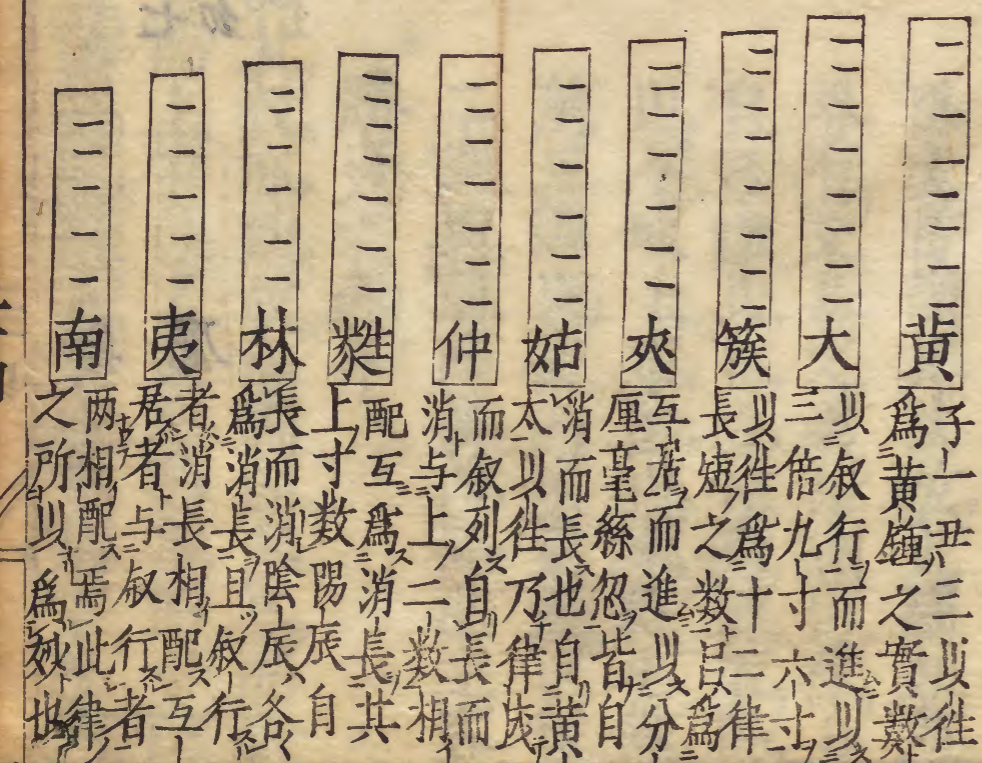 黄
大
簇
夾
姑
仲
蕤
林
夷
南
子一丑三以徃
爲黄鍾之實數
以叙行而進以
三倍九寸六寸
以徃爲十二律
長短之数呂爲
互居而進以分
厘毫絲忽皆自
消而長也自黄
太以徃乃律
而叙列自長而
消与上二数相
配互爲消長其
上寸数陽辰自
長而消陰辰各
爲消長且叙行
者消長相配互
居者与叙行者
两相配焉此律
之所以爲妙也